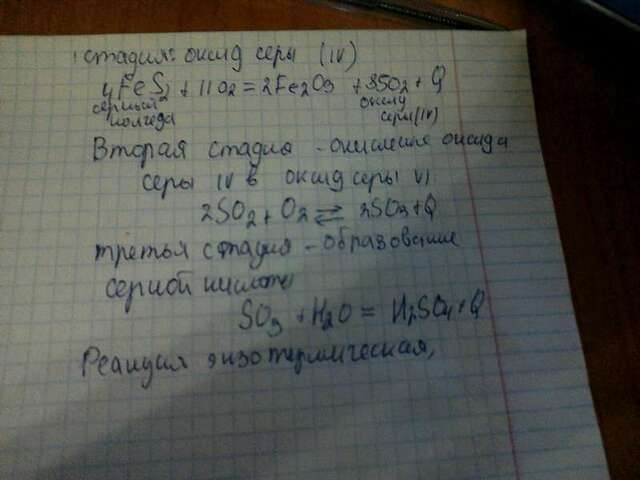 1 стадия: оксид серы (IV)
4FeS2 + 11O2 = 2Fe2O3 + 8SO2 + Q
серный колчедан
оксид серы (IV)
Вторая стадия - окисление оксида
серы IV в оксид серы VI
2SO2 + O2 ⇄ 2SO3 + Q
третья стадия - образование
серной кислоты
SO3 + H2O = H2SO4 + Q
Реакция экзотермическая,